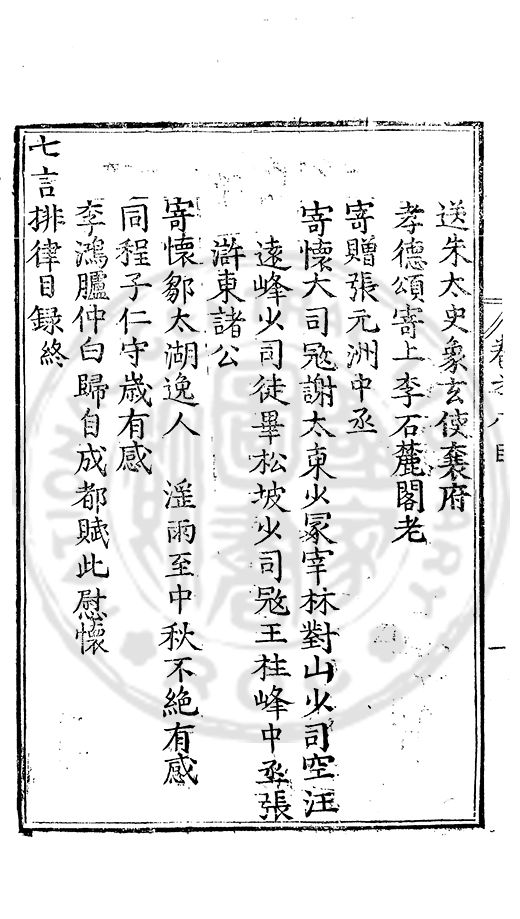 送朱太史象玄使襄府
孝德頌寄上李石麓閣老
寄贈張元洲中丞
寄懷大司寇謝太東少冢宰林對山少司空汪
遠峰少司徒畢松坡少司寇王柱峰中丞張
滸東諸公
寄懷鄒太湖逸人　滛雨至中秋不絕有感
同程子仁守歲有感
李鴻臚仲白歸自成都賦此慰懷
七言排律目錄終